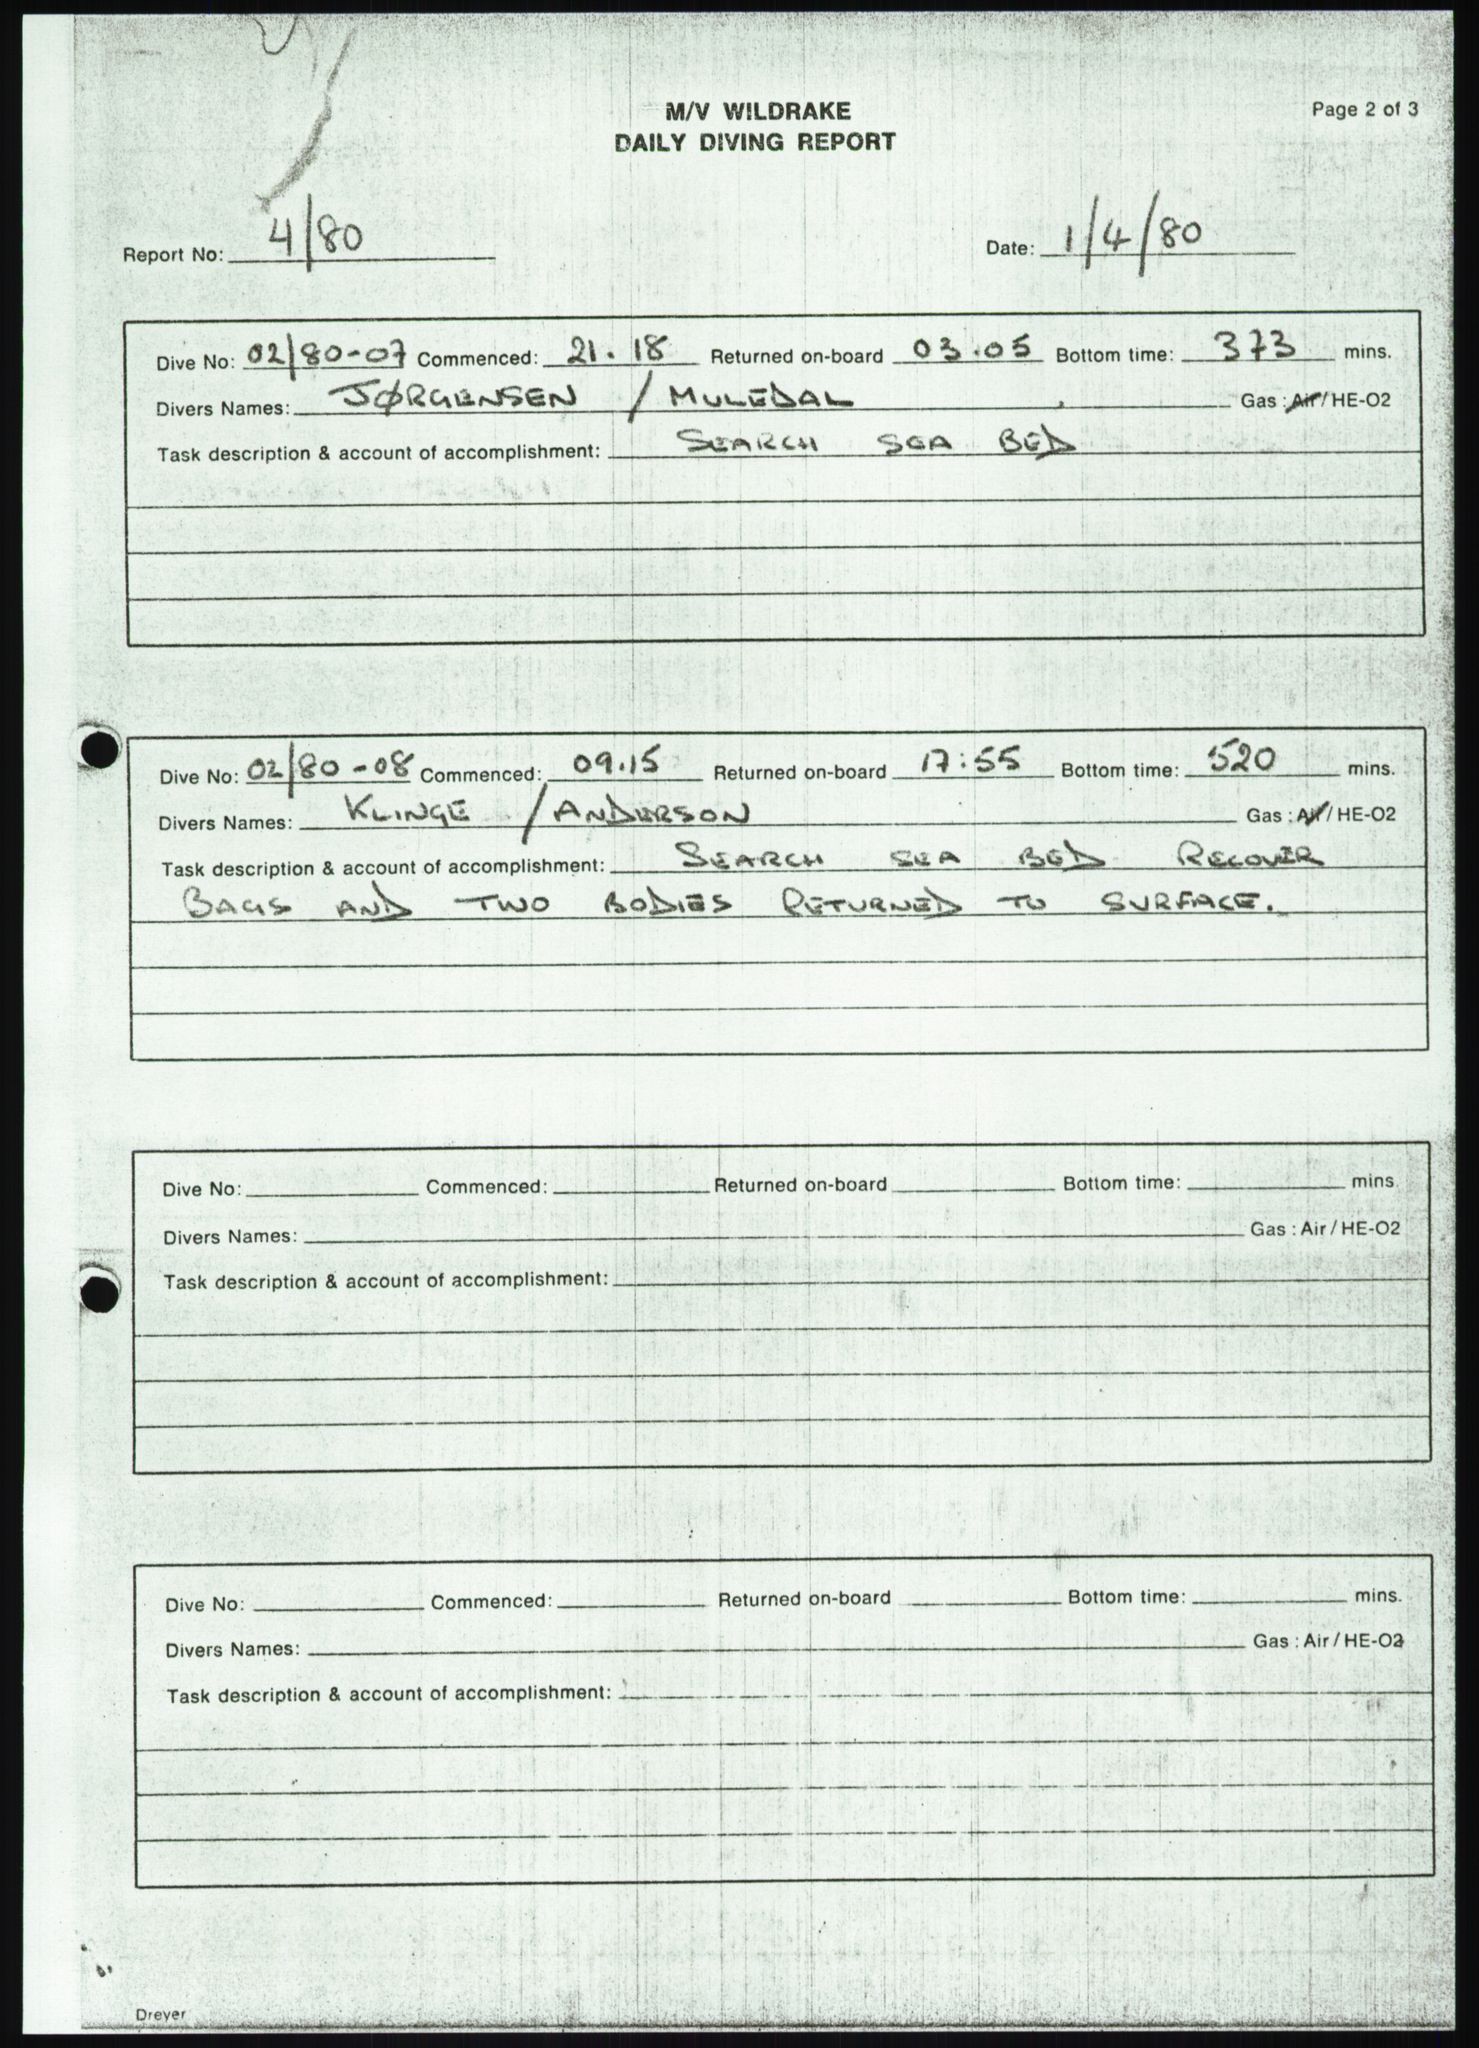 M/V WILDRAKE
DAILY DIVING REPORT
Page 2 of 3
Report No: 4/80 Date: 1/4/80
Dive No: 02/80-07 Commenced: 21.18 Returned on-board 03.05 Bottom time: 373 mins.
Divers Names: JØRGENSEN / MULEDAL Gas: Air/HE-O2
Task description & account of accomplishment: SEARCH SEA BED
Dive No: 02/80-08 Commenced: 09.15 Returned on-board 17:55 Bottom time: 520 mins.
Divers Names: KLINGE / ANDERSON Gas: Air/HE-O2
Task description & account of accomplishment: SEARCH SEA BED RECOVER
BAGS AND TWO BODIES RETURNED TO SURFACE.
Dive No: Commenced: Returned on-board Bottom time: mins.
Divers Names: Gas: Air/HE-O2
Task description & account of accomplishment:
Dive No: Commenced: Returned on-board Bottom time: mins.
Divers Names: Gas: Air/HE-O2
Task description & account of accomplishment:
Dreyer